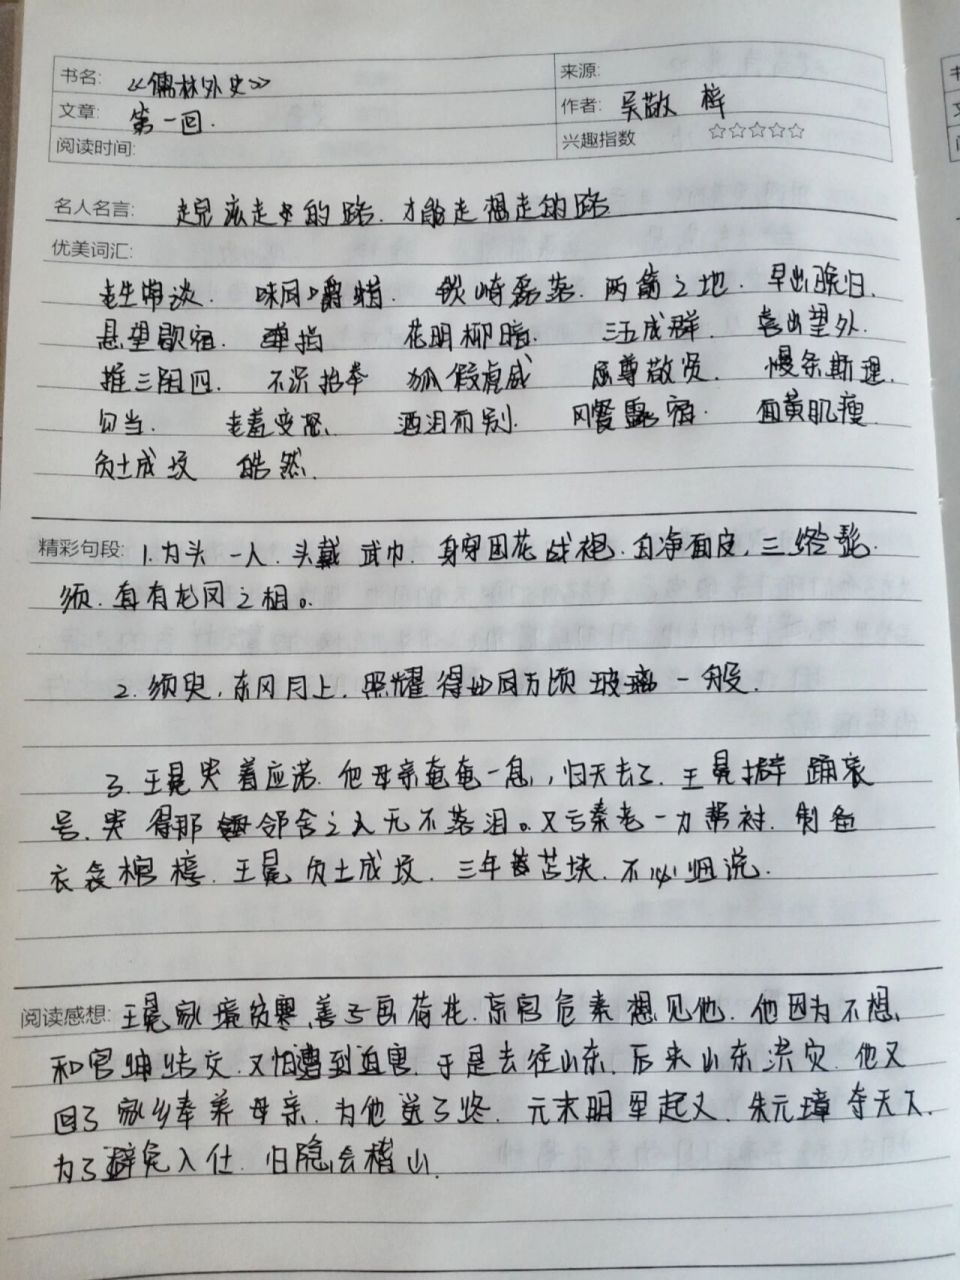 书名: 《儒林外史》 来源:
文章: 第一回. 作者: 吴敬梓
阅读时间: 兴趣指数 ☆☆☆☆☆
名人名言: 走的路. 才能走想走的路
优美词汇:
老生常谈. 味同嚼蜡. 嵚崎磊落. 两籥之地. 早出晚归.
悬望歇宿. 弹指 花明柳暗. 三五成群. 喜出望外.
推三阻四. 不识抬举 狐假虎威 屈尊敬贤. 慢条斯理.
勾当. 老羞变怒. 洒泪而别. 风餐露宿. 面黄肌瘦.
负土成坟 皓然.
精彩句段: 1. 为头一人. 头戴武巾. 身穿团花战袍. 白净面皮, 三绺髭
须. 真有龙凤之相。
2. 须臾, 东风月上. 照耀得如同万顷玻璃一般.
3. 王冕哭着应诺. 他母亲奄奄一息, 归天去了. 王冕擗踊哀
号. 哭得那邻舍之人无不落泪。又亏秦老一力帮衬. 制备
衣衾棺椁. 王冕负土成坟. 三年苫块. 不必细说.
阅读感想: 王冕家境贫寒, 善于画荷花. 京官危素想见他. 他因为不想
和官绅结交. 又怕遭到迫害. 于是去往山东. 后来山东洪灾. 他又
回了家乡奉养母亲. 为他送了终. 元末明早起义. 朱元璋夺天下.
为了避免入仕. 归隐会稽山.